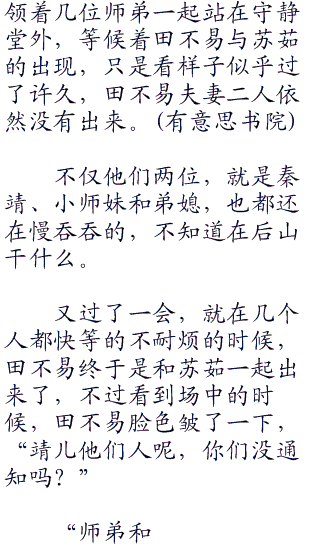 领着几位师弟一起站在守静
堂外，等候着田不易与苏茹
的出现，只是看样子似乎过
了许久，田不易夫妻二人依
然没有出来。(有意思书院)
　　不仅他们两位，就是秦
靖、小师妹和弟媳，也都还
在慢吞吞的，不知道在后山
干什么。
　　又过了一会，就在几个
人都快等的不耐烦的时候，
田不易终于是和苏茹一起出
来了，不过看到场中的时
候，田不易脸色皱了一下，
“靖儿他们人呢，你们没通
知吗？”
　　“师弟和